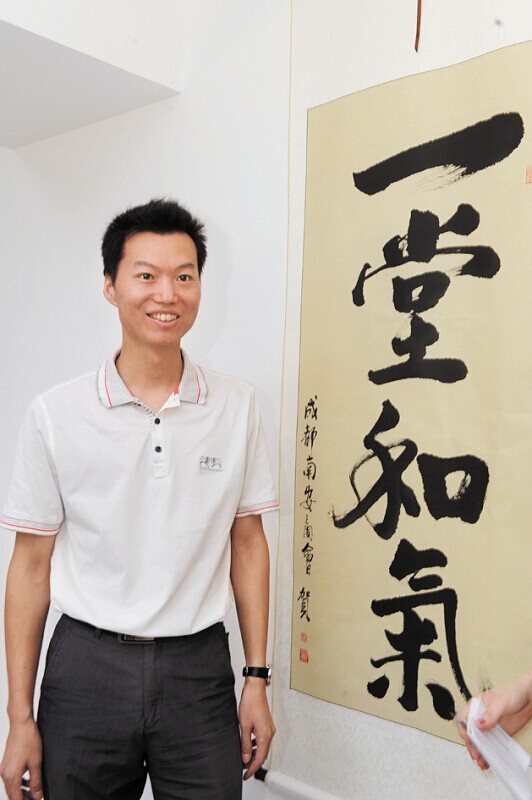 一堂和氣
成都南安商會賀